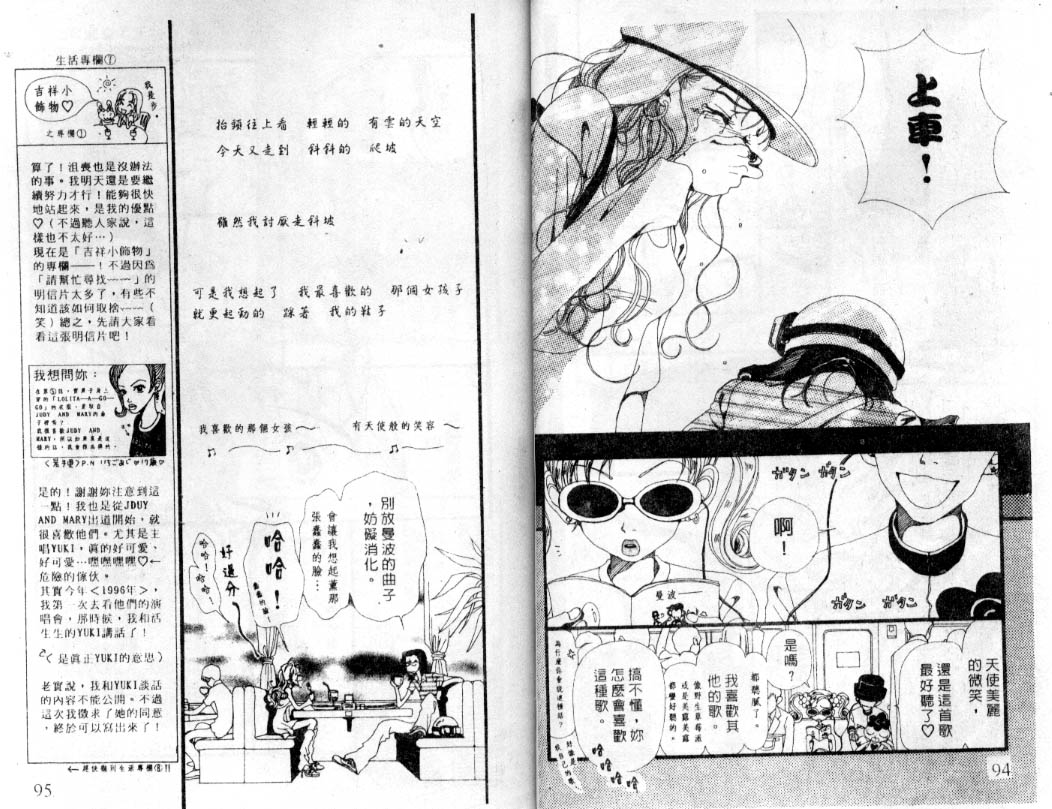 上車!
ガタン ガタン
啊!
ガタン ガタン
曼波
天使美麗
的微笑,
還是這首歌
最好聽了♡
是嗎?
都聽膩了。
我喜歡其
他的歌。
搞不懂,妳
怎麼會喜歡
這種歌。
哈
哈
哈
哈
94
抬頭往上看 輕輕的 有雲的天空
今天又走到 斜斜的 爬坡
雖然我討厭走斜坡
可是我想起了 我最喜歡的 那個女孩子
就更起勁的 踩著 我的鞋子
我喜歡的那個女孩~ 有天使般的笑容~
別放曼波的曲子
,妨礙消化。
會讓我想起薰那
張蠢蠢的臉…
哈
哈!
好過分
哈哈!哈哈!
生活專欄①
吉祥小
飾物♡
之專欄①
算了!沮喪也是沒辦法
的事。我明天還是要繼
續努力才行!能夠很快
地站起來,是我的優點
♡(不過聽人家說,這
樣也不太好…)
現在是「吉祥小飾物」
的專欄——!不過因爲
「請幫忙尋找~~」的
明信片太多了,有些不
知道該如何取捨~~(
笑)總之,先請大家看
看這張明信片吧!
我想問妳:
是的!謝謝妳注意到這
一點!我也是從JDUY
AND MARY出道開始,就
很喜歡他們。尤其是主
唱YUKI,真的好可愛、
好可愛…嘿嘿嘿嘿♡←
危險的傢伙。
其實今年<1996年>,
我第一次去看他們的演
唱會,那時候,我和活
生生的YUKI講話了!
(是真正YUKI的意思)
老實說,我和YUKI談話
的內容不能公開。不過
這次我徵求了她的同意
,終於可以寫出來了!
95